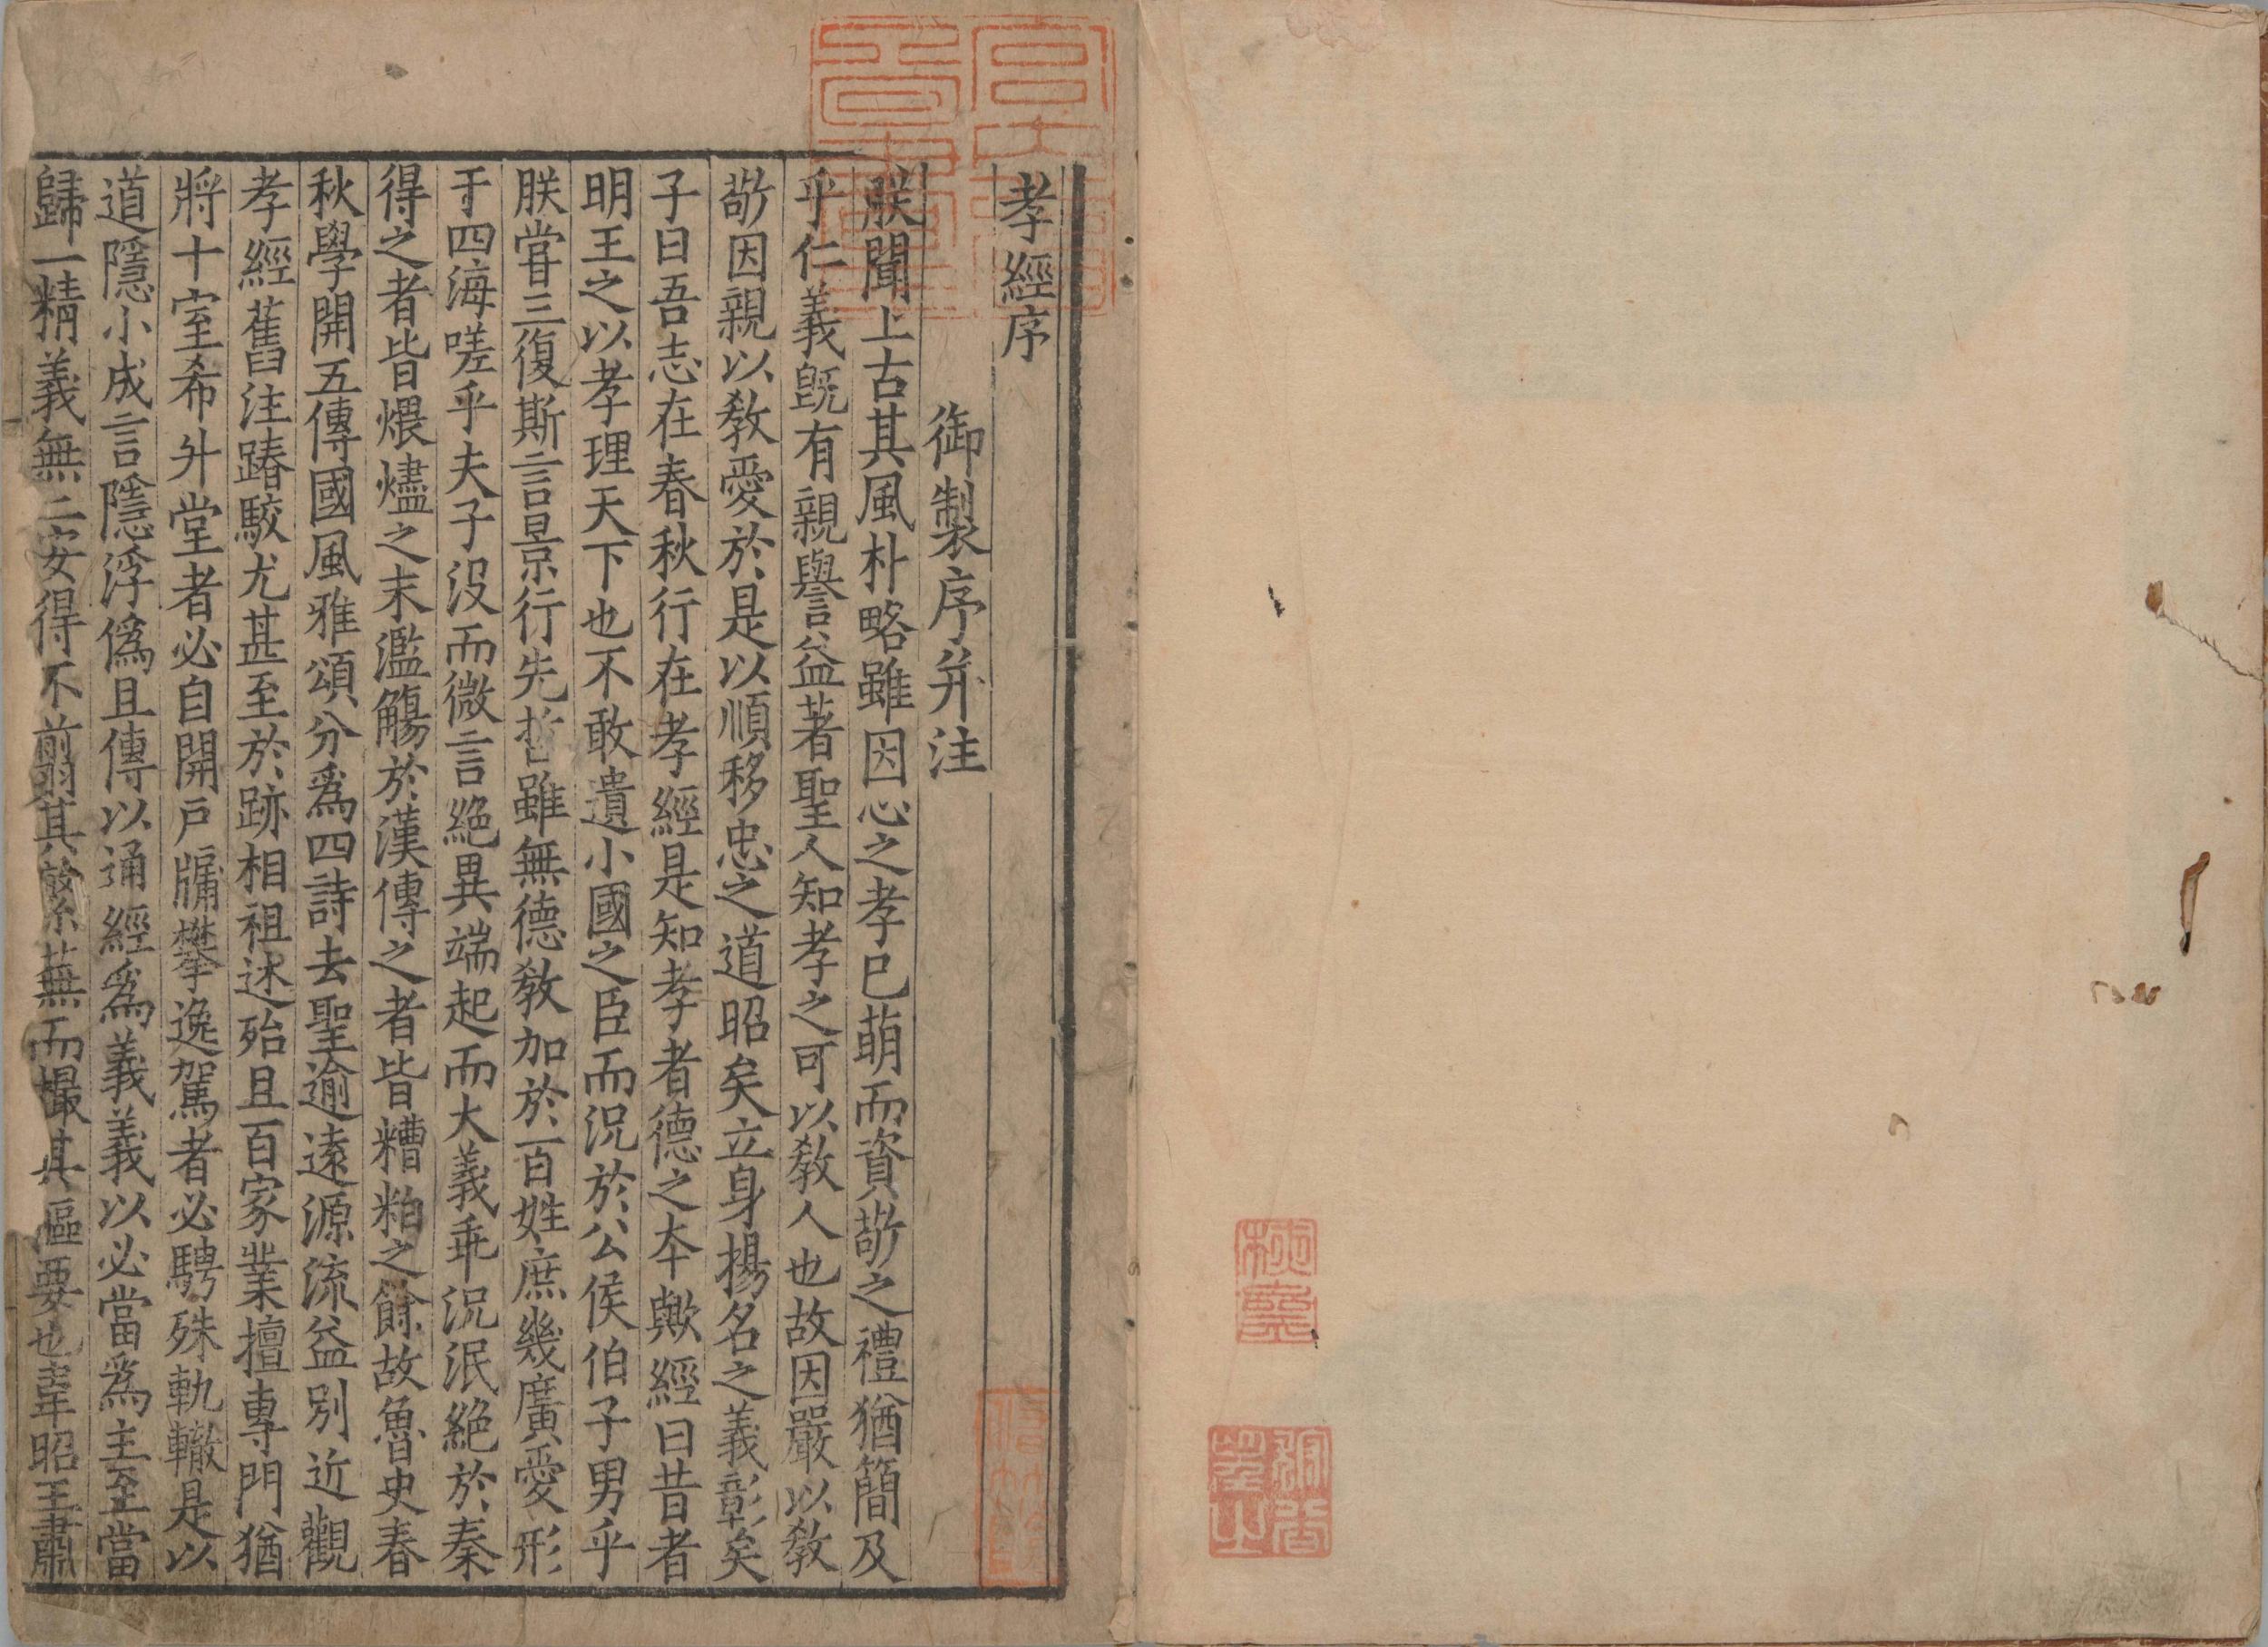 孝經序
御製序并注
朕聞上古其風朴略雖因心之孝已萌而資敬之禮猶簡及
乎仁義旣有親譽益著聖人知孝之可以敎人也故因嚴以敎
敬因親以敎愛於是以順移忠之道昭矣立身揚名之義彰矣
子曰吾志在春秋行在孝經是知孝者德之本歟經曰昔者
明王之以孝理天下也不敢遺小國之臣而況於公侯伯子男乎
朕嘗三復斯言景行先哲雖無德敎加於百姓庶幾廣愛形
于四海嗟乎夫子沒而微言絶異端起而大義乖況泯絶於秦
得之者皆煨燼之末濫觴於漢傳之者皆糟粕之餘故魯史春
秋學開五傳國風雅頌分爲四詩去聖逾遠源流益別近觀
孝經舊注踳駮尤甚至於跡相祖述殆且百家業擅專門猶
將十室希升堂者必自開戶牖攀逸駕者必騁殊軌轍是以
道隱小成言隱浮僞且傳以通經爲義義以必當爲主至當
歸一精義無二安得不翦其繁蕪而撮其樞要也韋昭王肅